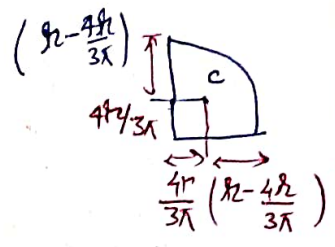 (r - 4r/3π)
C
4r/3π
4r/3π (r - 4r/3π)